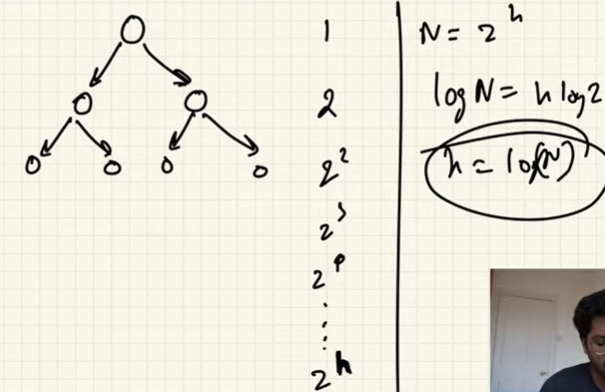 1
2
2²
2³
2⁴
⋮
2ʰ
N = 2ʰ
log N = h log 2
h = log(N)